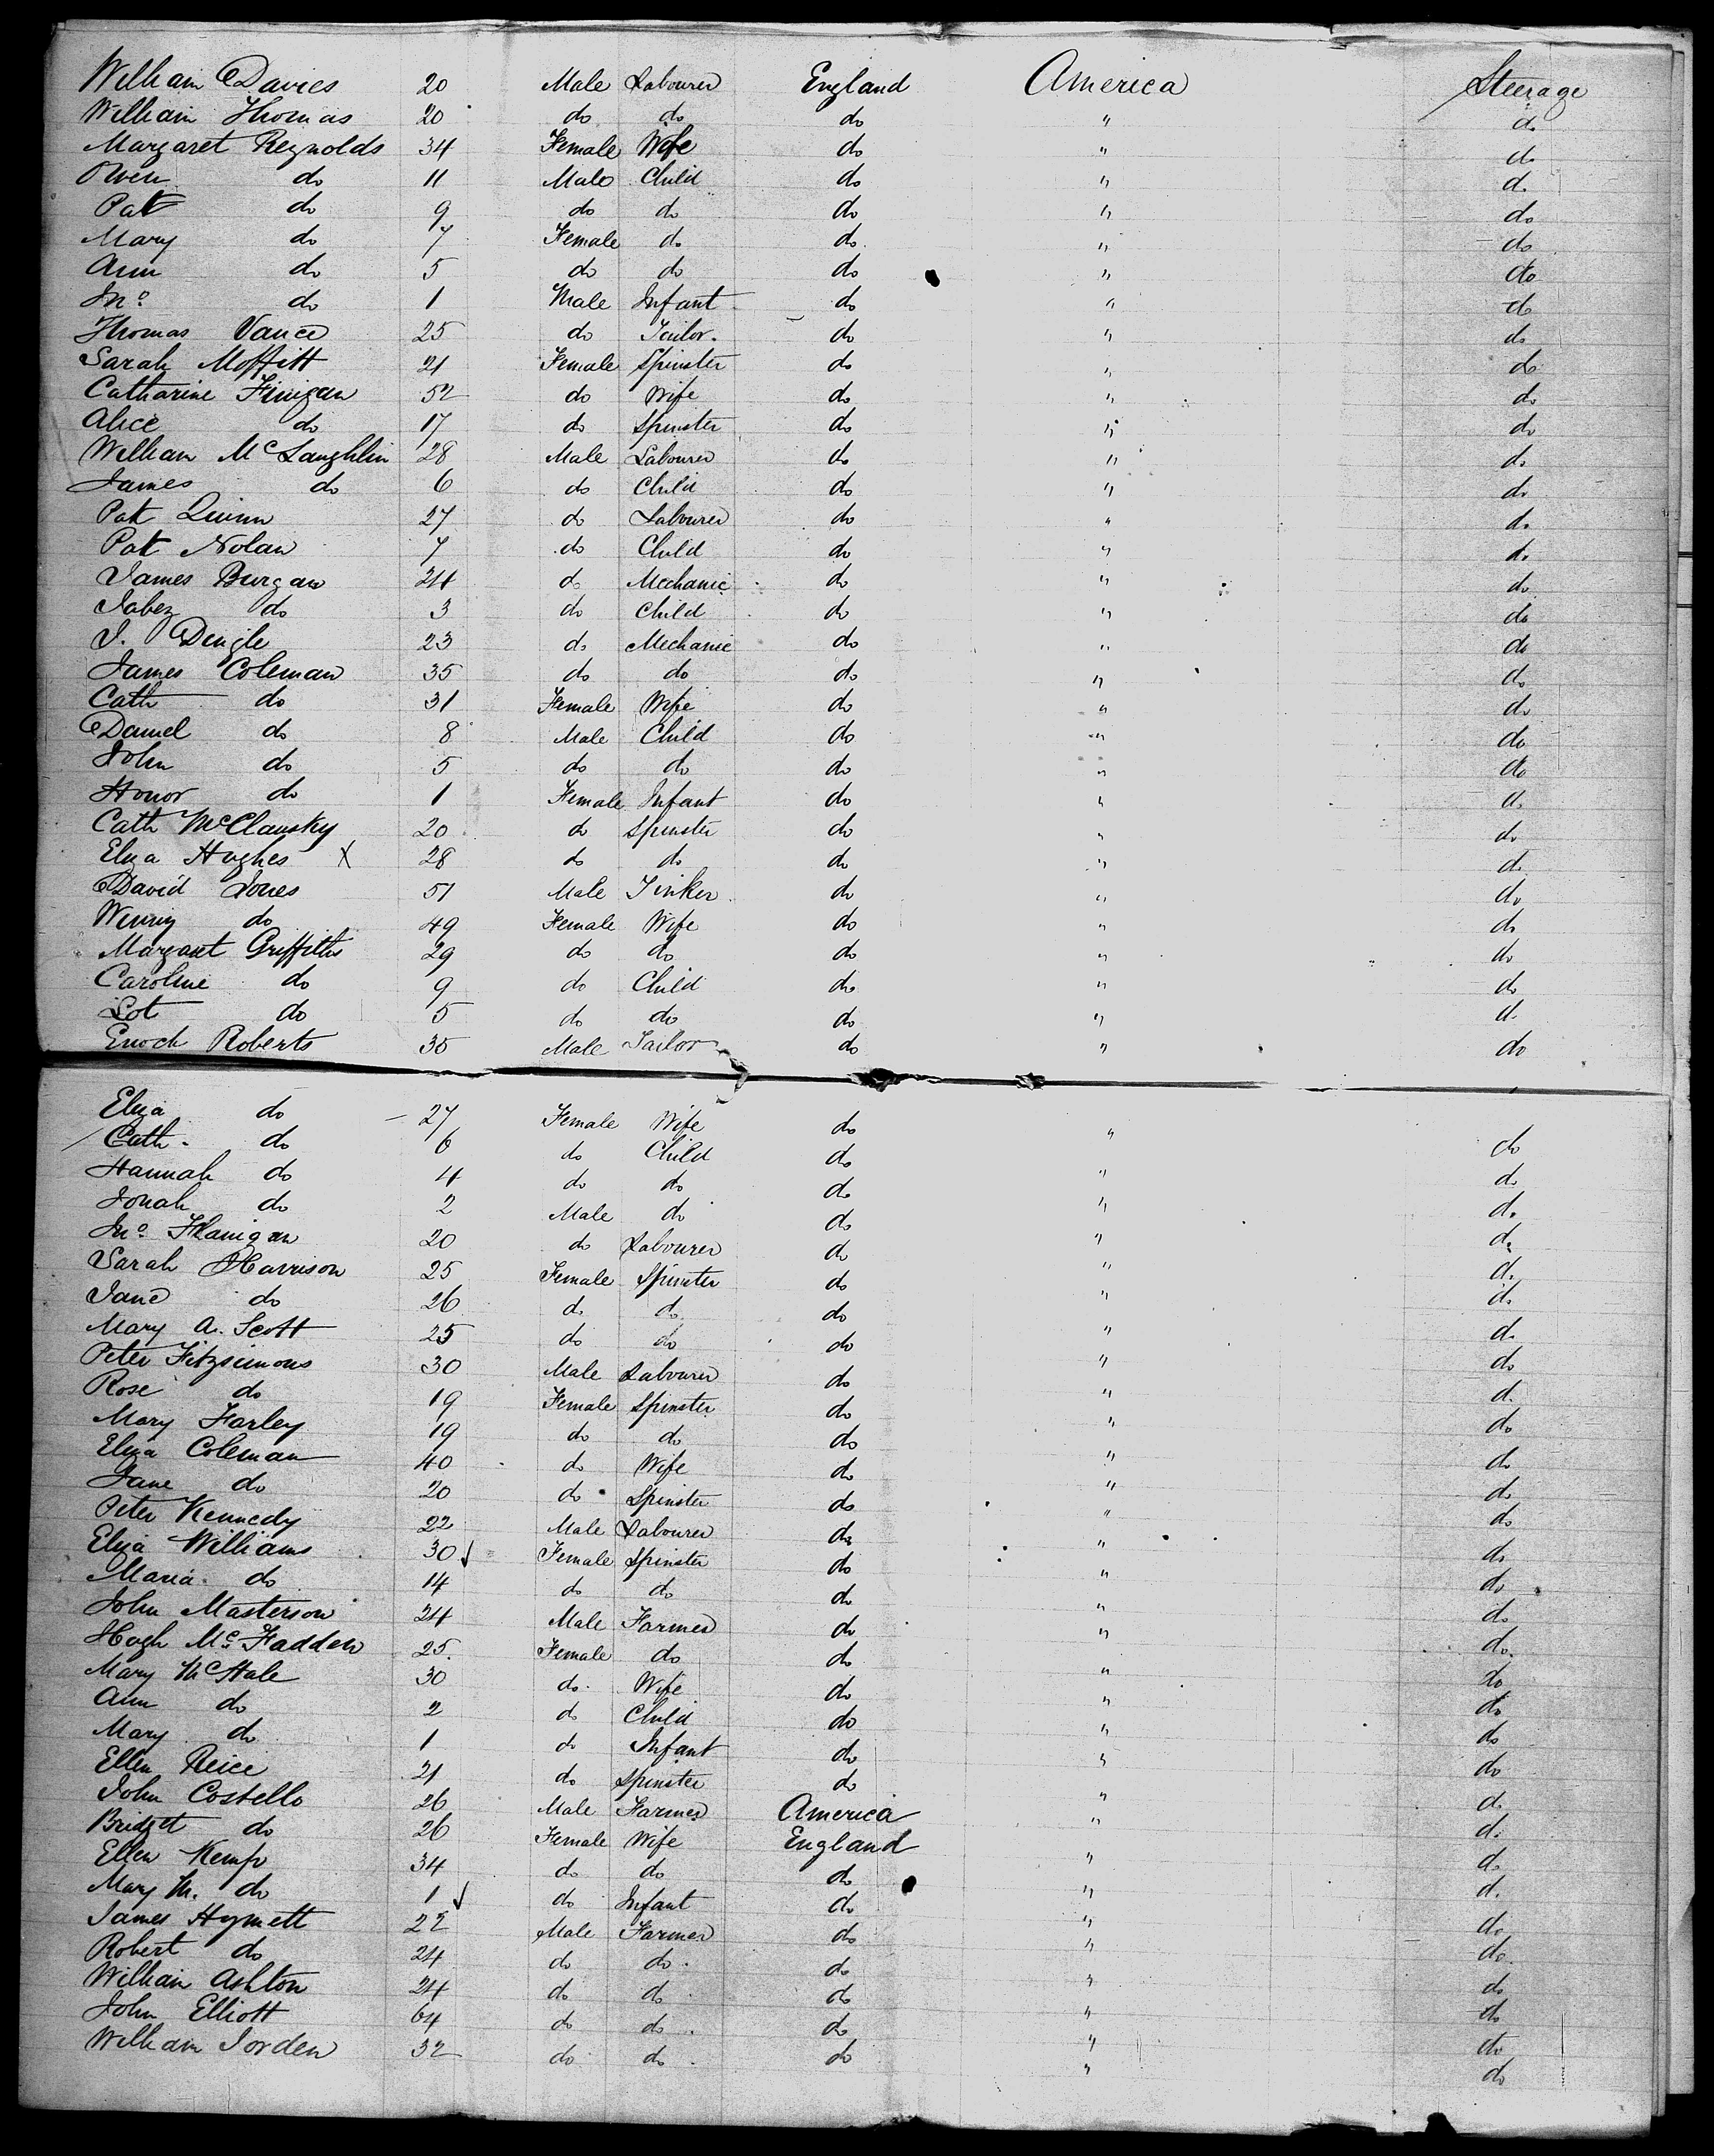 William Davies 20 Male Labourer England America Steerage
William Thomas 20 do do do " do
Margaret Reynolds 34 Female Wife do " do
Owen do 11 Male Child do " do
Pat do 9 do do do " do
Mary do 7 Female do do " do
Ann do 5 do do do " do
Jno. do 1 Male Infant do " do
Thomas Vance 25 do Tailor do " do
Sarah Moffitt 21 Female Spinster do " do
Catharine Finigan 52 do Wife do " do
Alice do 17 do Spinster do " do
William McLaughlin 28 Male Labourer do " do
James do 6 do Child do " do
Pat Quinn 27 do Labourer do " do
Pat Nolan 7 do Child do " do
James Burgan 24 do Mechanic do " do
Jabez do 3 do Child do " do
J. Dingle 23 do Mechanic do " do
James Coleman 35 do do do " do
Cath do 31 Female Wife do " do
Daniel do 8 Male Child do " do
John do 5 do do do " do
Honor do 1 Female Infant do " do
Cath McClausky 20 do Spinster do " do
Eliza Hughes X 28 do do do " do
David Jones 51 Male Tinker do " do
Winny do 49 Female Wife do " do
Margaret Griffiths 29 do do do " do
Caroline do 9 do Child do " do
Lot do 5 do do do " do
Enoch Roberts 35 Male Tailor do " do
Eliza do 27 Female Wife do " do
Cath. do 6 do Child do " do
Hannah do 4 do do do " do
Jonah do 2 Male do do " do
Jno. Flanigan 20 do Labourer do " do
Sarah Harrison 25 Female Spinster do " do
Jane do 26 do do do " do
Mary A. Scott 25 do do do " do
Peter Fitzsimons 30 Male Labourer do " do
Rose do 19 Female Spinster do " do
Mary Farley 19 do do do " do
Eliza Coleman 40 do Wife do " do
Jane do 20 do Spinster do " do
Peter Kennedy 22 Male Labourer do " do
Eliza Williams 30 Female Spinster do " do
Maria do 14 do do do " do
John Masterson 24 Male Farmer do " do
Hugh McFadden 25 Female do do " do
Mary McHale 30 do Wife do " do
Ann do 2 do Child do " do
Mary do 1 do Infant do " do
Ellen Reice 21 do Spinster do " do
John Costello 26 Male Farmer America " do
Bridget do 26 Female Wife England " do
Ellen Kemp 34 do do do " do
Mary M. do 1 do Infant do " do
James Hymett 22 Male Farmer do " do
Robert do 24 do do do " do
William Ashton 24 do do do " do
John Elliott 64 do do do " do
William Jorden 32 do do do " do